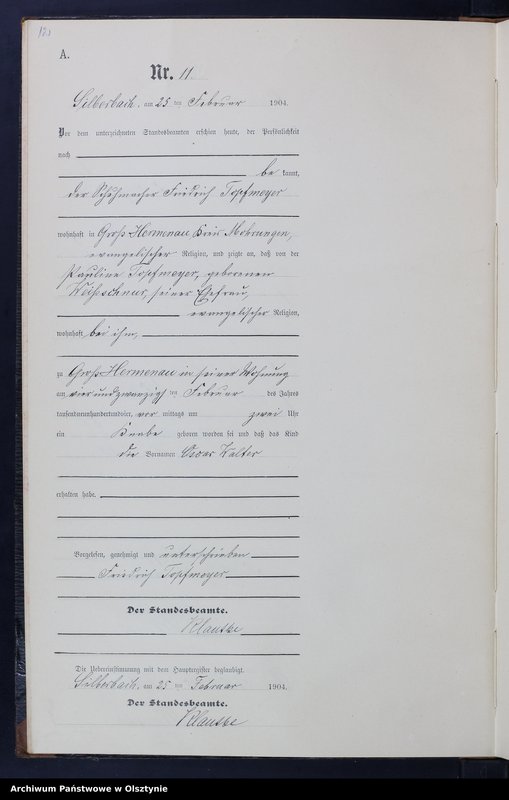 A.
Nr. 11
Silberbach, am 25 ten Februar 1904.
Vor dem unterzeichneten Standesbeamten erschien heute, der Persönlichkeit
nach
be kannt,
der Schuhmacher Friedrich Topfmeyer
wohnhaft in Groß Hermenau Kreis Mohrungen,
evangelischer Religion, und zeigte an, daß von der
Pauline Topfmeyer, geborenen
seiner Ehefrau,
evangelischer Religion,
wohnhaft bei ihm,
zu Groß Hermenau in seiner Wohnung
am vier und zwanzigsten Februar des Jahres
tausendneunhundertundvier, vor mittags um zwei Uhr
ein Knabe geboren worden sei und daß das Kind
die Vornamen Oscar Walter
erhalten habe.
Vorgelesen, genehmigt und unterschrieben
Friedrich Topfmeyer
Der Standesbeamte.
Die Uebereinstimmung mit dem Hauptregister beglaubigt.
Silberbach, am 25 ten Februar 1904.
Der Standesbeamte.
Archiwum Państwowe w Olsztynie